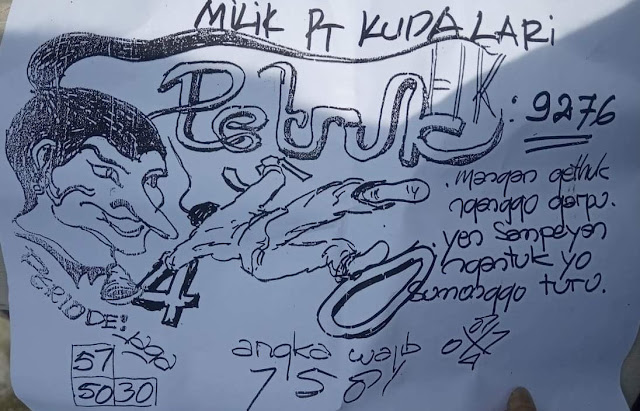 MILIK PT KUDALARI
Petruk
EJK : 9276
. Mangan gethuk
nganggo garpu.
. yen Sampeyan
ngantuk yo
Sumonggo turu.
4
0
PERIODE:
57
50 30
angka wajib
7 5 8 1